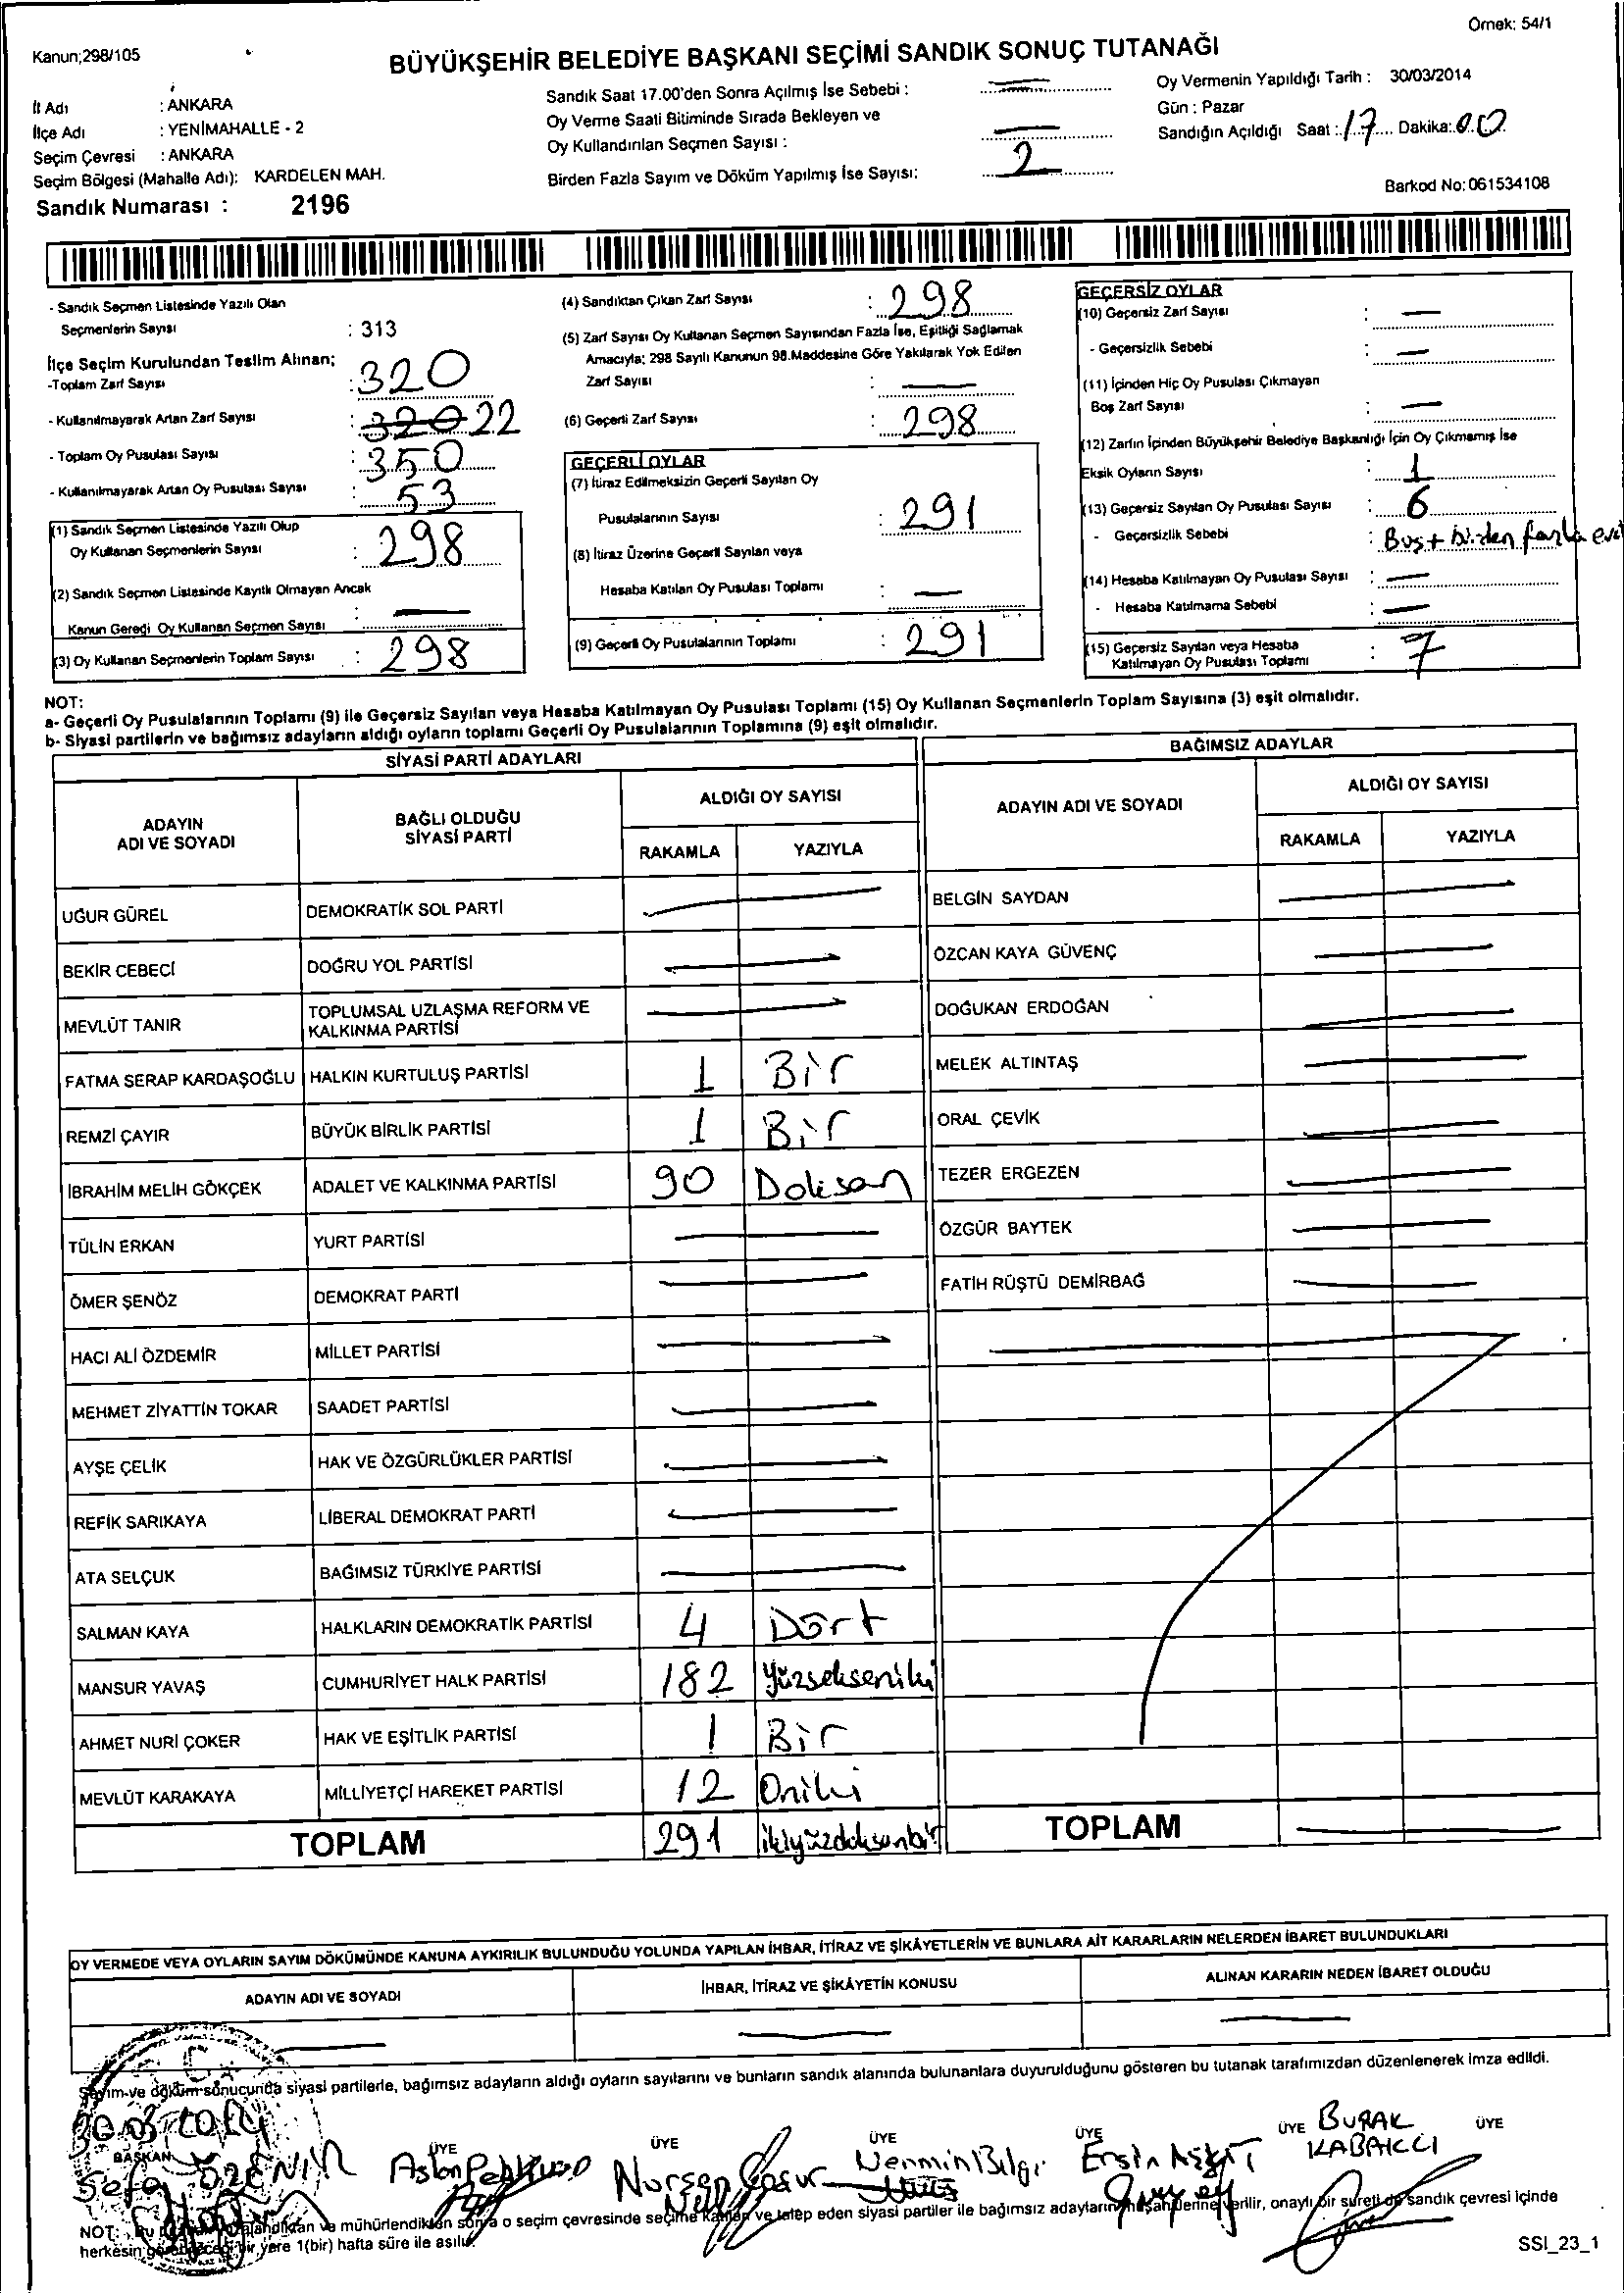 Örnek: 54/1
Kanun;298/105
BÜYÜKŞEHİR BELEDİYE BAŞKANI SEÇİMİ SANDIK SONUÇ TUTANAĞI
İl Adı : ANKARA
İlçe Adı : YENİMAHALLE - 2
Seçim Çevresi : ANKARA
Seçim Bölgesi (Mahalle Adı); KARDELEN MAH.
Sandık Numarası : 2196
Sandık Saat 17.00'den Sonra Açılmış İse Sebebi : —
Oy Verme Saati Bitiminde Sırada Bekleyen ve
Oy Kullandırılan Seçmen Sayısı : —
Birden Fazla Sayım ve Döküm Yapılmış İse Sayısı: 2
Oy Vermenin Yapıldığı Tarih : 30/03/2014
Gün : Pazar
Sandığın Açıldığı Saat : 17 Dakika: 00
Barkod No: 061534108
- Sandık Seçmen Listesinde Yazılı Olan
Seçmenlerin Sayısı : 313
İlçe Seçim Kurulundan Teslim Alınan;
-Toplam Zarf Sayısı : 320
- Kullanılmayarak Artan Zarf Sayısı : 320 22
- Toplam Oy Pusulası Sayısı : 350
- Kullanılmayarak Artan Oy Pusulası Sayısı : 53
(1) Sandık Seçmen Listesinde Yazılı Olup
Oy Kullanan Seçmenlerin Sayısı : 298
(2) Sandık Seçmen Listesinde Kayıtlı Olmayan Ancak
Kanun Gereği Oy Kullanan Seçmen Sayısı : —
(3) Oy Kullanan Seçmenlerin Toplam Sayısı : 298
(4) Sandıktan Çıkan Zarf Sayısı : 298
(5) Zarf Sayısı Oy Kullanan Seçmen Sayısından Fazla İse, Eşitliği Sağlamak
Amacıyla; 298 Sayılı Kanunun 98.Maddesine Göre Yakılarak Yok Edilen
Zarf Sayısı : —
(6) Geçerli Zarf Sayısı : 298
GEÇERLİ OYLAR
(7) İtiraz Edilmeksizin Geçerli Sayılan Oy
Pusulalarının Sayısı : 291
(8) İtiraz Üzerine Geçerli Sayılan veya
Hesaba Katılan Oy Pusulası Toplamı : —
(9) Geçerli Oy Pusulalarının Toplamı : 291
GEÇERSİZ OYLAR
(10) Geçersiz Zarf Sayısı : —
- Geçersizlik Sebebi : —
(11) İçinden Hiç Oy Pusulası Çıkmayan
Boş Zarf Sayısı : —
(12) Zarfın İçinden Büyükşehir Belediye Başkanlığı İçin Oy Çıkmamış İse
Eksik Oyların Sayısı : 1
(13) Geçersiz Sayılan Oy Pusulası Sayısı : 6
- Geçersizlik Sebebi : Boş + birden fazla
(14) Hesaba Katılmayan Oy Pusulası Sayısı : —
- Hesaba Katılmama Sebebi : —
(15) Geçersiz Sayılan veya Hesaba
Katılmayan Oy Pusulası Toplamı : 7
NOT:
a- Geçerli Oy Pusulalarının Toplamı (9) ile Geçersiz Sayılan veya Hesaba Katılmayan Oy Pusulası Toplamı (15) Oy Kullanan Seçmenlerin Toplam Sayısına (3) eşit olmalıdır.
b- Siyasi partilerin ve bağımsız adayların aldığı oyların toplamı Geçerli Oy Pusulalarının Toplamına (9) eşit olmalıdır.
SİYASİ PARTİ ADAYLARI
ADAYIN
ADI VE SOYADI
BAĞLI OLDUĞU
SİYASİ PARTİ
ALDIĞI OY SAYISI
RAKAMLA YAZIYLA
UĞUR GÜREL DEMOKRATİK SOL PARTİ —
BEKİR CEBECİ DOĞRU YOL PARTİSİ —
MEVLÜT TANIR TOPLUMSAL UZLAŞMA REFORM VE
KALKINMA PARTİSİ —
FATMA SERAP KARDAŞOĞLU HALKIN KURTULUŞ PARTİSİ 1 Bir
REMZİ ÇAYIR BÜYÜK BİRLİK PARTİSİ 1 Bir
İBRAHİM MELİH GÖKÇEK ADALET VE KALKINMA PARTİSİ 90 Doksan
TÜLİN ERKAN YURT PARTİSİ —
ÖMER ŞENÖZ DEMOKRAT PARTİ —
HACI ALİ ÖZDEMİR MİLLET PARTİSİ —
MEHMET ZİYATTİN TOKAR SAADET PARTİSİ —
AYŞE ÇELİK HAK VE ÖZGÜRLÜKLER PARTİSİ —
REFİK SARIKAYA LİBERAL DEMOKRAT PARTİ —
ATA SELÇUK BAĞIMSIZ TÜRKİYE PARTİSİ —
SALMAN KAYA HALKLARIN DEMOKRATİK PARTİSİ 4 Dört
MANSUR YAVAŞ CUMHURİYET HALK PARTİSİ 182 Yüzsekseniki
AHMET NURİ ÇOKER HAK VE EŞİTLİK PARTİSİ 1 Bir
MEVLÜT KARAKAYA MİLLİYETÇİ HAREKET PARTİSİ 12 Oniki
TOPLAM 291 ikiyüzdoksanbir
BAĞIMSIZ ADAYLAR
ADAYIN ADI VE SOYADI
ALDIĞI OY SAYISI
RAKAMLA YAZIYLA
BELGİN SAYDAN —
ÖZCAN KAYA GÜVENÇ —
DOĞUKAN ERDOĞAN —
MELEK ALTINTAŞ —
ORAL ÇEVİK —
TEZER ERGEZEN —
ÖZGÜR BAYTEK —
FATİH RÜŞTÜ DEMİRBAĞ —
TOPLAM —
OY VERMEDE VEYA OYLARIN SAYIM DÖKÜMÜNDE KANUNA AYKIRILIK BULUNDUĞU YOLUNDA YAPILAN İHBAR, İTİRAZ VE ŞİKÂYETLERİN VE BUNLARA AİT KARARLARIN NELERDEN İBARET BULUNDUKLARI
ADAYIN ADI VE SOYADI İHBAR, İTİRAZ VE ŞİKÂYETİN KONUSU ALINAN KARARIN NEDEN İBARET OLDUĞU
— — —
Sayım ve döküm sonucunda siyasi partilerle, bağımsız adayların aldığı oyların sayılarını ve bunların sandık alanında bulunanlara duyurulduğunu gösteren bu tutanak tarafımızdan düzenlenerek imza edildi.
30.03.2014
BAŞKAN ÜYE ÜYE ÜYE ÜYE ÜYE ÜYE
Sefa Aslan Nurşen Nermin Bilgi Ersin BURAK
KABAKCI
NOT: Bu ve mühürlendikten sonra o seçim çevresinde seçime katılan ve talep eden siyasi partiler ile bağımsız adayların müşahitlerine verilir, onaylı bir sureti de sandık çevresi içinde
herkesin görebileceği bir yere 1(bir) hafta süre ile asılır.
SSI_23_1